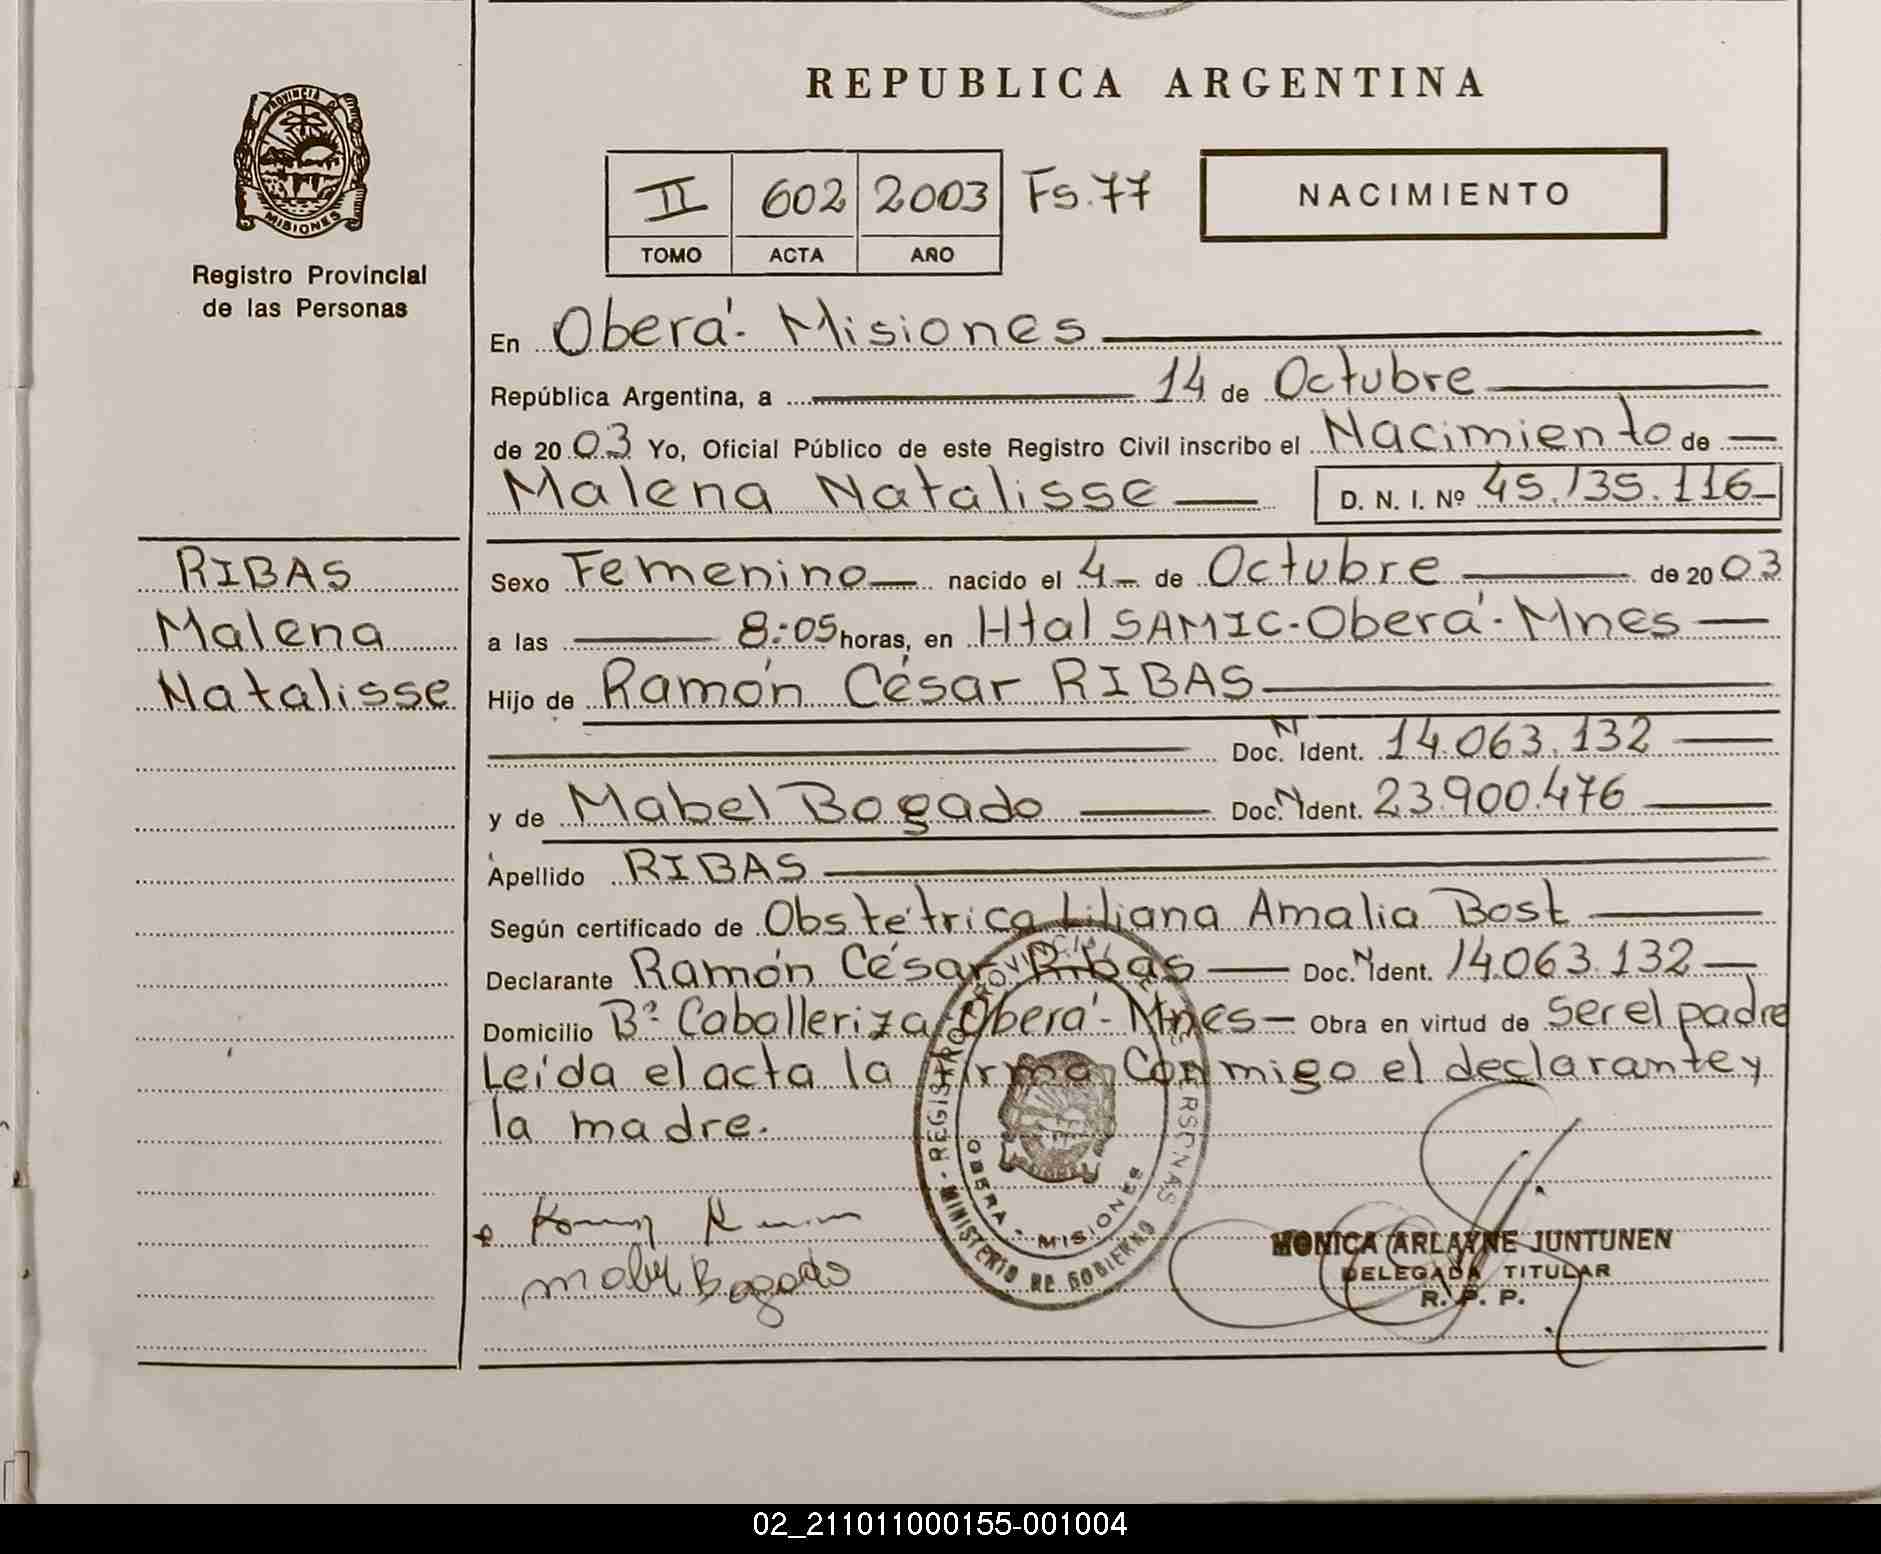 REPUBLICA ARGENTINA
PROVINCIA DE
MISIONES
Registro Provincial
de las Personas
II 602 2003 Fs. 77
TOMO ACTA AÑO
NACIMIENTO
En Oberá - Misiones
República Argentina, a 14 de Octubre
de 2003 Yo, Oficial Público de este Registro Civil inscribo el Nacimiento de
Malena Natalisse D. N. I. Nº 45.135.116
RIBAS
Malena
Natalisse
Sexo Femenino nacido el 4 de Octubre de 2003
a las 8:05 horas, en Htal SAMIC - Oberá - Mnes
Hijo de Ramón César RIBAS
Doc. N Ident. 14.063.132
y de Mabel Bogado Doc. N Ident. 23.900.476
Apellido RIBAS
Según certificado de Obstétrica Liliana Amalia Bost
Declarante Ramón César Ribas Doc. N Ident. 14.063.132
Domicilio Bº Caballeriza Oberá - Mnes - Obra en virtud de ser el padre
Leída el acta la firma conmigo el declarante y
la madre.
REGISTRO PROVINCIAL DE LAS PERSONAS
OBERA - MISIONES
MINISTERIO DE GOBIERNO
Mabel Bogado
MONICA ARLAYNE JUNTUNEN
DELEGADA TITULAR
R. P. P.
02_211011000155-001004